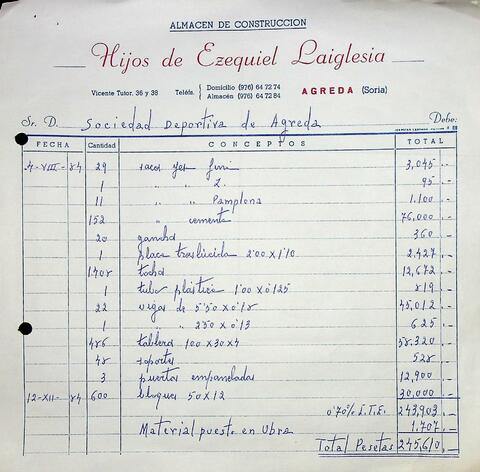 ALMACEN DE CONSTRUCCION
Hijos de Ezequiel Laiglesia
Vicente Tutor, 36 y 38 Teléfs. Domicilio (976) 64 72 74
Almacén (976) 64 72 84 AGREDA (Soria)
Sr. D. Sociedad Deportiva de Agreda Debe:
FECHA Cantidad CONCEPTOS TOTAL
4-VIII-84 29 sacos yeso fini 3,045,-
1 " " Z. 95,-
11 " " Pamplona 1.100,-
152 " cemento 76,000,-
20 gancho 360,-
1 placa traslúcida 2'00 x 1'10 2.427,-
1.408 tocho 12,672,-
1 tubo plástico 1'00 x 0'125 819,-
22 vigas de 5'50 x 0'18 45,012,-
1 " " 2'50 x 0'13 625,-
486 tablero 100 x 30 x 4 58.320,-
48 soportes 528,-
3 puertas empaneladas 12,900,-
12-XII-84 600 bloques 50 x 12 30,000,-
0'70% I.T.E. 243,903,-
Material puesto en Obra 1.707,-
Total Pesetas 245,610,-